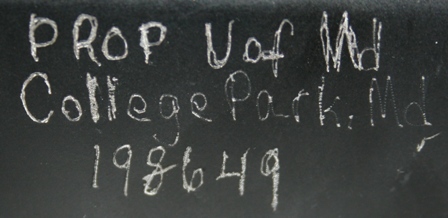 PROP U of Md
College Park, Md
198649